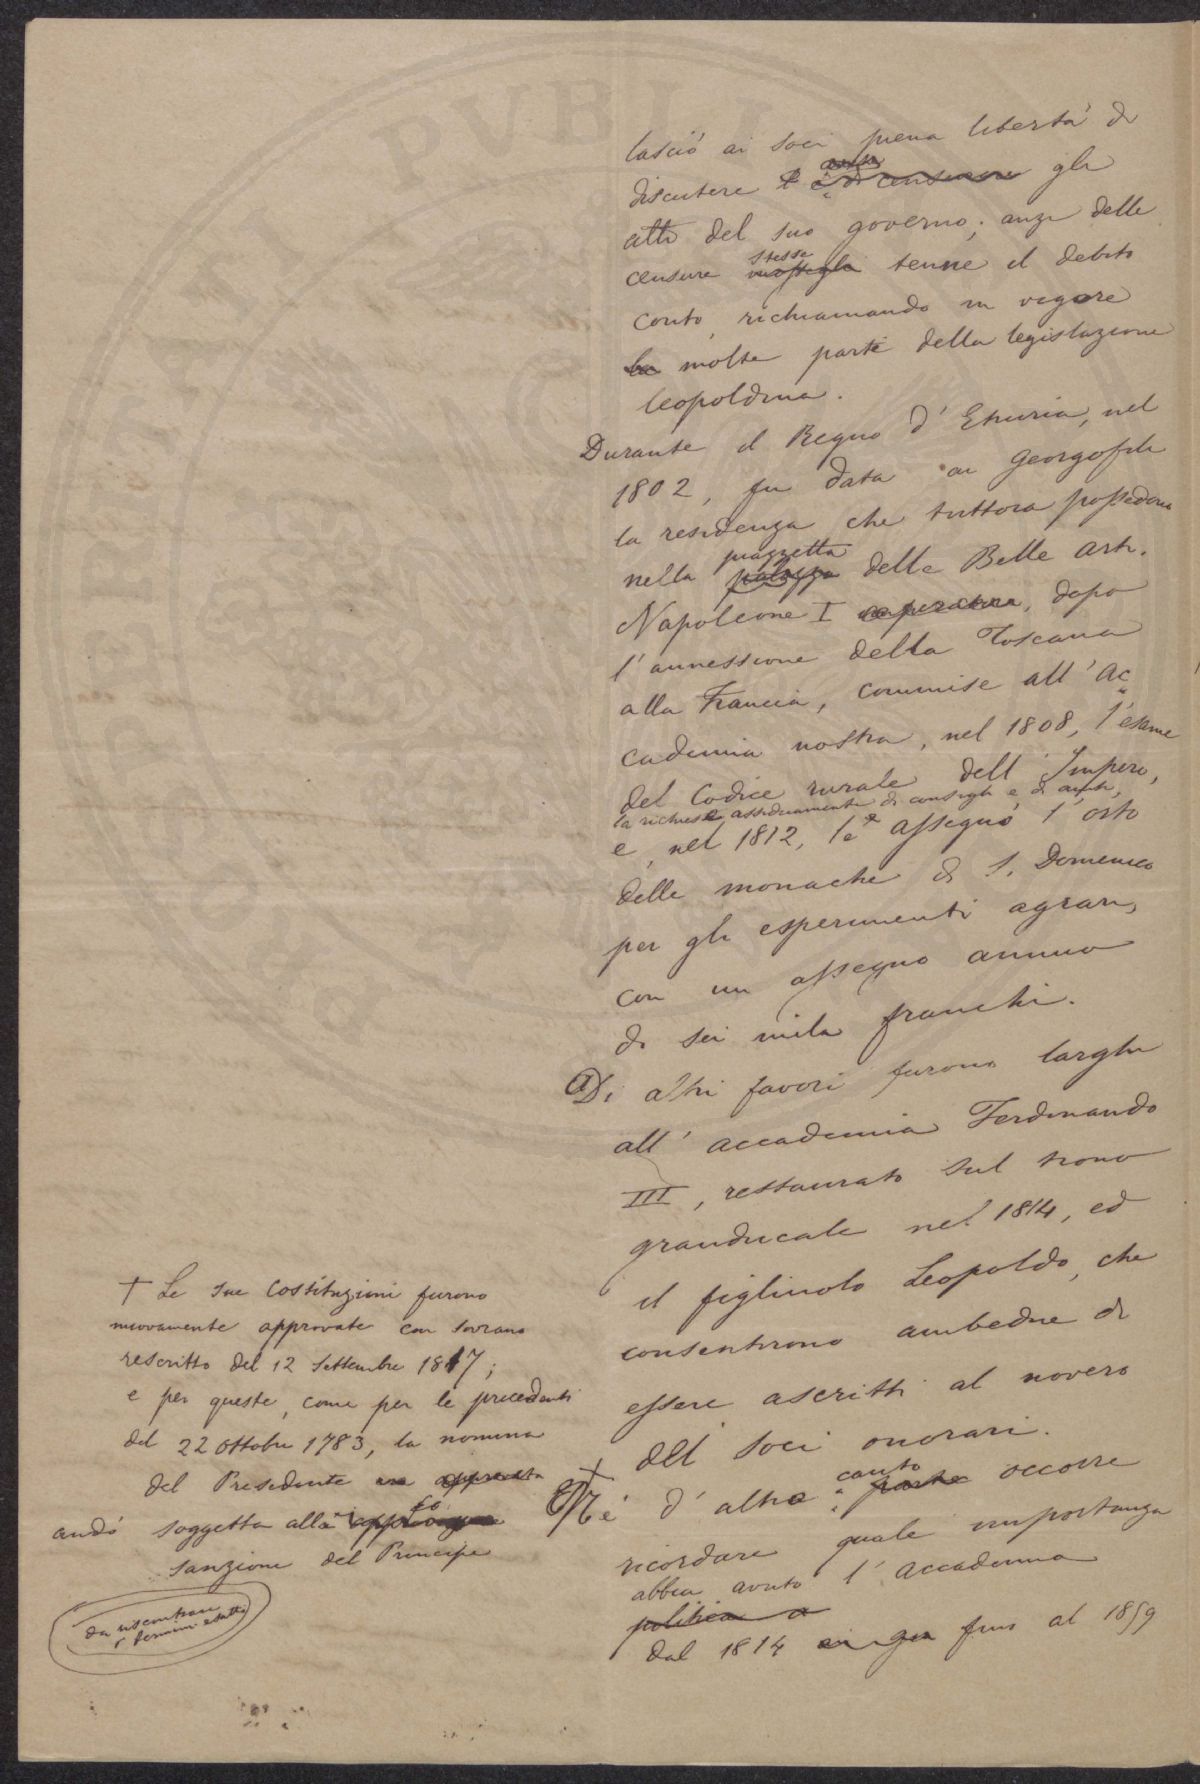 lasciò ai soci piena libertà di
discutere e di censurare gli
atti del suo governo; anzi delle
censure stesse tenne il debito
conto, richiamando in vigore
la molte parti della legislazione
leopoldina.
Durante il Regno d'Etruria, nel
1802, fu data ai Georgofili
la residenza che tuttora possedono
nella piazzetta palazzo delle Belle arti.
Napoleone I imperatore, dopo
l'annessione della Toscana
alla Francia, commise all'Ac
cademia nostra, nel 1808, l'esame
del Codice rurale dell'Impero,
la richiese assiduamente di consigli e di aiuti,
e, nel 1812, le assegnò l'orto
delle monache di S. Domenico
per gli esperimenti agrari,
con un assegno annuo
di sei mila franchi.
Di altri favori furono larghi
all'accademia Ferdinando
III, restaurato sul trono
granducale nel 1814, ed
il figliuolo Leopoldo, che
consentirono ambedue di
essere ascritti al novero
dei soci onorari.
+
Né d'altro canto parte occorre
ricordare quale importanza
abbia avuto l'Accademia
politica a
dal 1814 fino al 1859
+ Le sue Costituzioni furono
nuovamente approvate con sovrano
rescritto del 12 Settembre 1817;
e per queste, come per le precedenti
del 22 ottobre 1783, la nomina
del Presidente
andò soggetta alla
sanzione del Principe
da riscontrare
i termini esatti